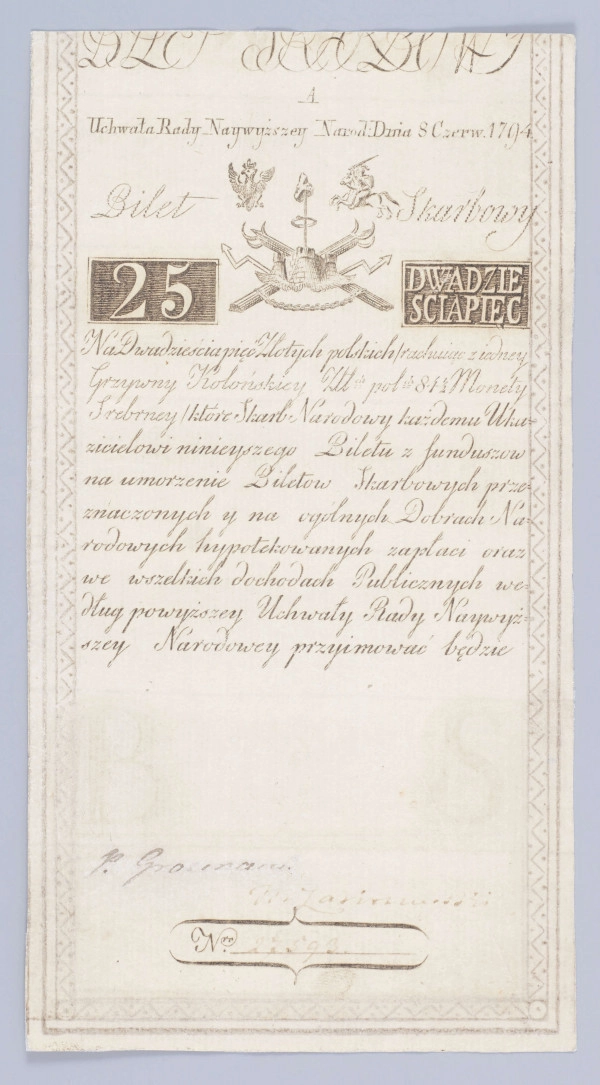 BILET SKARBOWY
A
Uchwała Rady Naywyższey Narod: Dnia 8 Czerw. 1794
Bilet Skarbowy
25 DWADZIE
SCIAPIĘC
Na Dwadzieściapięć Złotych polskich /rachuiąc z iedney
Grzywny Kolońskiey Złt. pol. 84½ Monety
Srebrney/ które Skarb Narodowy każdemu Uka=
zicielowi ninieyszego Biletu z funduszow
na umorzenie Biletow Skarbowych prze=
znaczonych y na ogólnych Dobrach Na=
rodowych hypotekowanych zapłaci oraz
we wszelkich dochodach Publicznych we=
dług powyższey Uchwały Rady Naywyż=
szey Narodowey przyimować będzie
Nro